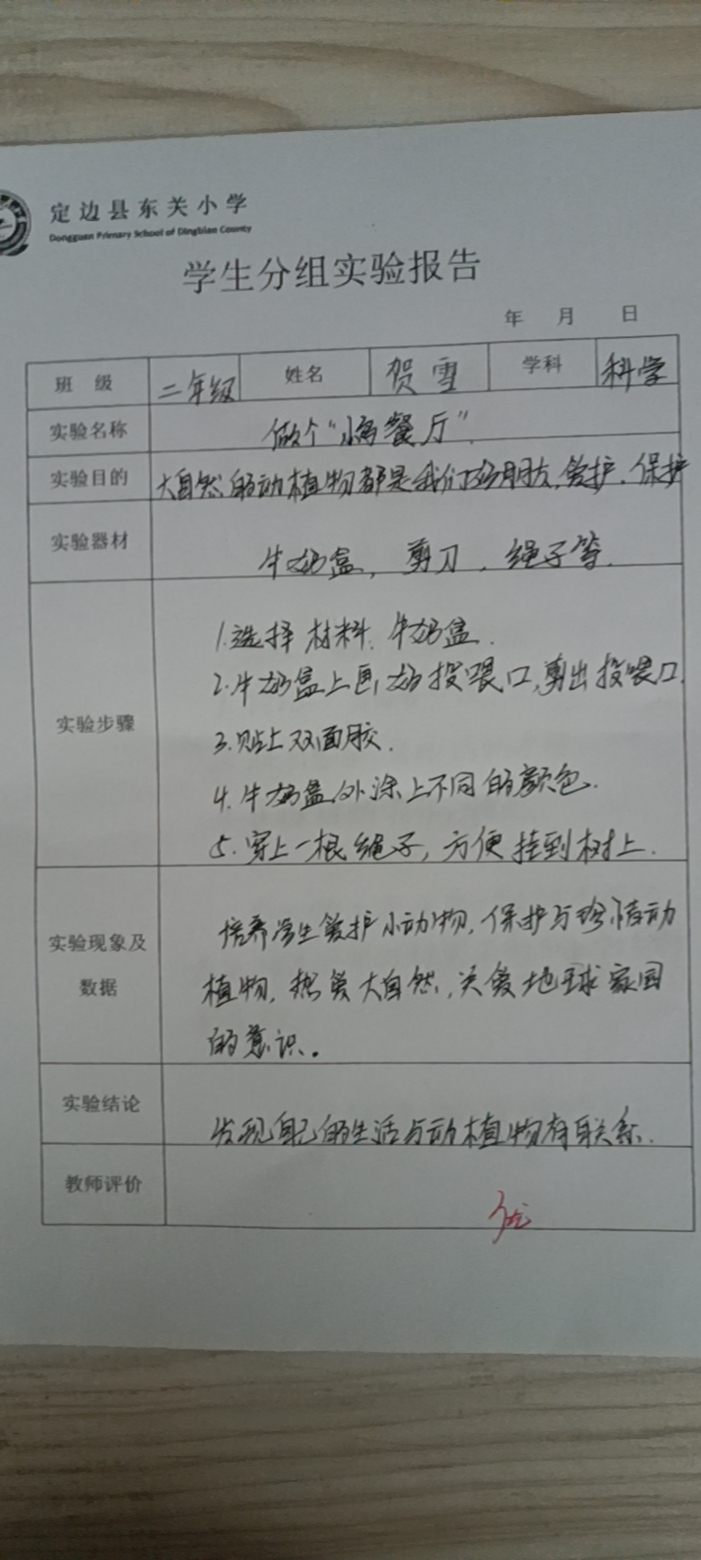 定边县东关小学
Dongguan Primary School of Dingbian County
学生分组实验报告
年 月 日
班 级 二年级 姓名 贺雪 学科 科学
实验名称 做个“小鸟餐厅”.
实验目的 大自然的动植物都是我们好朋友,爱护、保护
实验器材 牛奶盒, 剪刀 、绳子等.
实验步骤
1.选择材料.牛奶盒.
2.牛奶盒上画好投喂口,剪出投喂口.
3.贴上双面胶.
4.牛奶盒外涂上不同的颜色.
5.穿上一根绳子,方便挂到树上.
实验现象及数据
培养学生爱护小动物,保护与珍惜动
植物,热爱大自然,关爱地球家园
的意识。
实验结论 发现自己的生活与动植物有联系.
教师评价 优